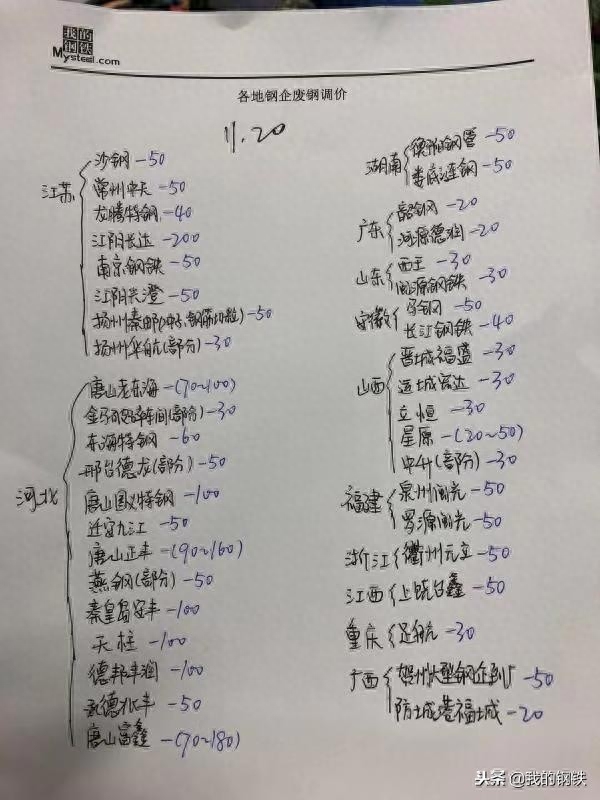 我的
钢铁
Mysteel.com
各地钢企废钢调价
11.20
江苏
沙钢 -50
常州中天 -50
龙腾特钢 -40
江阴长达 -200
南京钢铁 -50
江阴兴澄 -50
扬州秦邮(中小,钢筋切粒) -50
扬州华航(部分) -30
河北
唐山老东海 -(70~100)
金马破碎车间(部分) -30
东海特钢 -60
邢台德龙(部分) -50
唐山国义特钢 -100
迁安九江 -50
唐山正丰 -(90~160)
燕钢(部分) -50
秦皇岛安丰 -100
天柱 -100
德邦丰润 -100
承德兆丰 -50
唐山富鑫 -(70~180)
湖南
衡阳钢管 -50
娄底涟钢 -50
广东
韶钢 -20
河源德润 -20
山东
西王 -30
闽源钢铁 -30
安徽
马钢 -50
长江钢铁 -40
山西
晋城福盛 -30
运城宏达 -30
立恒 -30
星原 -(20~50)
中升(部分) -30
福建
泉州闽光 -50
罗源闽光 -50
浙江
衢州元立 -50
江西
上饶台鑫 -50
重庆
足航 -30
广西
贺州大型钢企到厂 -50
防城港福城 -20
头条 @我的钢铁